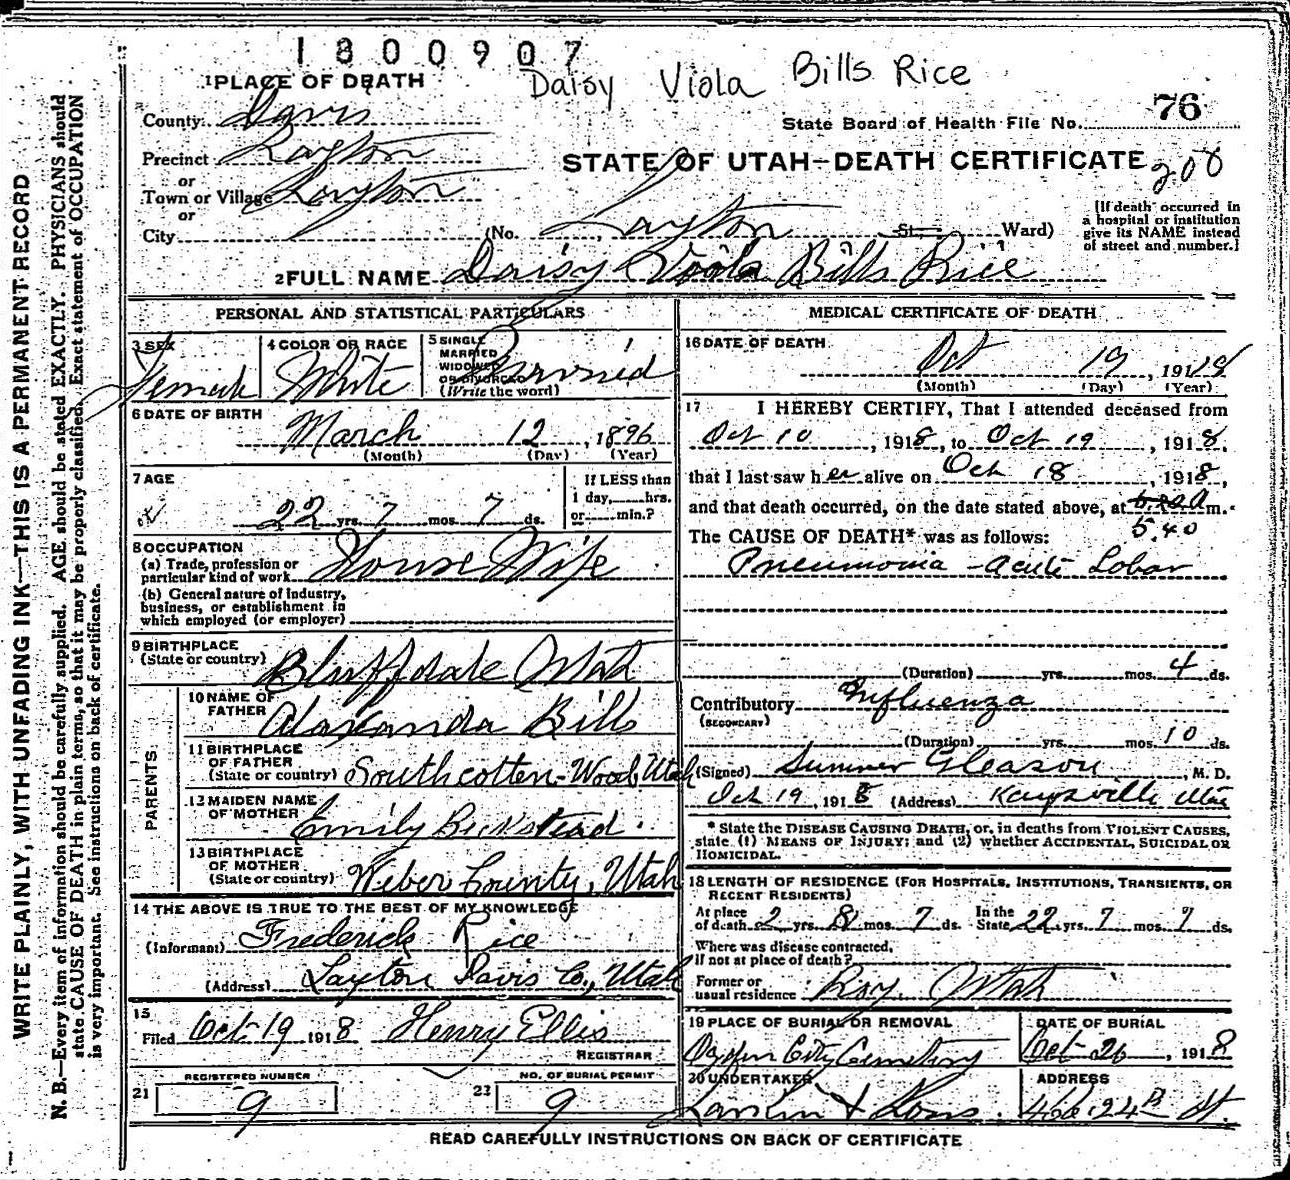 1800907
Daisy Viola Bills Rice
1 PLACE OF DEATH
76
County Davis
State Board of Health File No.
Precinct Layton
STATE OF UTAH—DEATH CERTIFICATE
208
or
Town or Village Layton
or
City (No. Layton St. Ward)
[If death occurred in
a hospital or institution
give its NAME instead
of street and number.]
2 FULL NAME Daisy Viola Bills Rice
PERSONAL AND STATISTICAL PARTICULARS
3 SEX
Female
4 COLOR OR RACE
White
5 SINGLE
MARRIED
WIDOWED
OR DIVORCED
(Write the word)
Married
6 DATE OF BIRTH
March 12, 1896
(Month) (Day) (Year)
7 AGE
22 yrs. 7 mos. 7 ds.
If LESS than
1 day, hrs.
or min.?
8 OCCUPATION
(a) Trade, profession or
particular kind of work House Wife
(b) General nature of industry,
business, or establishment in
which employed (or employer)
9 BIRTHPLACE
(State or country) Bluffdale Utah
PARENTS
10 NAME OF
FATHER Alaxanda Bills
11 BIRTHPLACE
OF FATHER
(State or country) South cotten-Wood Utah
12 MAIDEN NAME
OF MOTHER Emily Beckstead.
13 BIRTHPLACE
OF MOTHER
(State or country) Weber County, Utah
14 THE ABOVE IS TRUE TO THE BEST OF MY KNOWLEDGE
(Informant) Frederick Rice
(Address) Layton Davis Co., Utah
15
Filed Oct 19 1918 Henry Ellis
REGISTRAR
21 REGISTERED NUMBER
9
23 NO. OF BURIAL PERMIT
9
MEDICAL CERTIFICATE OF DEATH
16 DATE OF DEATH
Oct 19, 1918
(Month) (Day) (Year)
17 I HEREBY CERTIFY, That I attended deceased from
Oct 10, 1918, to Oct 19, 1918.
that I last saw her alive on Oct 18, 1918,
and that death occurred, on the date stated above, at a m.
5.40
The CAUSE OF DEATH* was as follows:
Pneumonia - acute Lobar
(Duration) yrs. mos. 4 ds.
Contributory Influenza
(SECONDARY)
(Duration) yrs. mos. 10 ds.
(Signed) Sumner Gleason, M. D.
Oct 19, 1918 (Address) Kaysville Utah
* State the DISEASE CAUSING DEATH, or, in deaths from VIOLENT CAUSES,
state (1) MEANS OF INJURY; and (2) whether ACCIDENTAL, SUICIDAL OR
HOMICIDAL.
18 LENGTH OF RESIDENCE (FOR HOSPITALS, INSTITUTIONS, TRANSIENTS, OR
RECENT RESIDENTS)
At place
of death 2 yrs. 8 mos. 7 ds. In the
State 22 yrs. 7 mos. 7 ds.
Where was disease contracted,
if not at place of death?
Former or
usual residence Roy. Utah
19 PLACE OF BURIAL OR REMOVAL
Ogden City Cemetery
DATE OF BURIAL
Oct 26, 1918
20 UNDERTAKER
Larkin & Sons.
ADDRESS
24th St.
READ CAREFULLY INSTRUCTIONS ON BACK OF CERTIFICATE
WRITE PLAINLY, WITH UNFADING INK—THIS IS A PERMANENT RECORD
N. B.—Every item of information should be carefully supplied. AGE should be stated EXACTLY. PHYSICIANS should
state CAUSE OF DEATH in plain terms, so that it may be properly classified. Exact statement of OCCUPATION
is very important. See instructions on back of certificate.